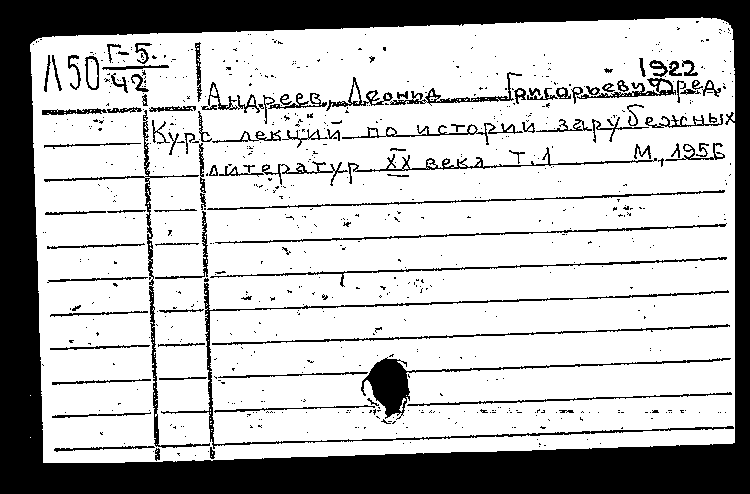 Л50 Г-5.
42
1922
Андреев, Леонид Григорьевич ред.
Курс лекций по истории зарубежных
литератур XX века Т.1 М., 1956